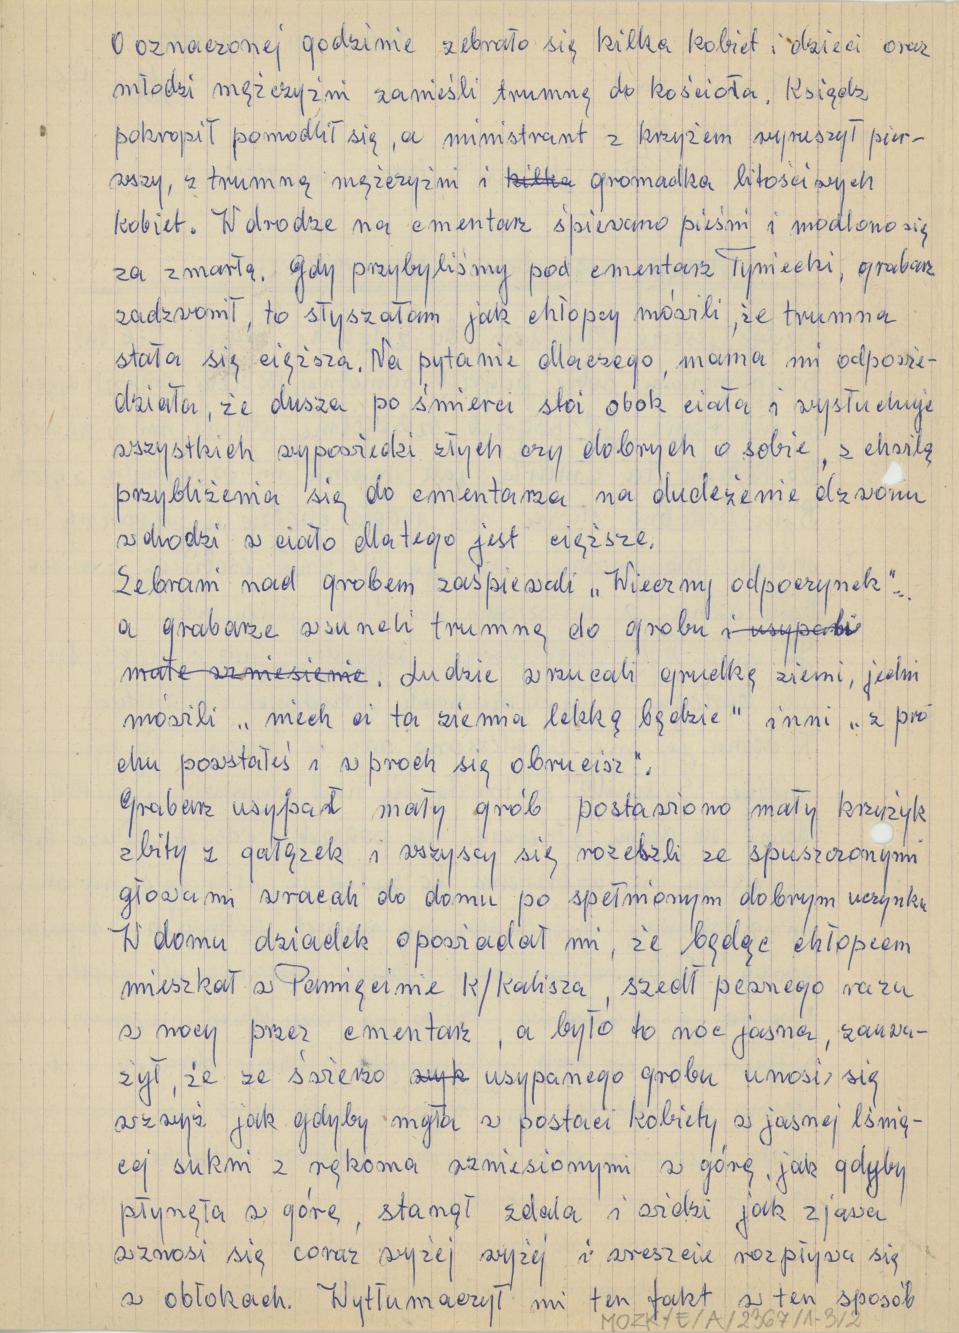 O oznaczonej godzinie zebrało się kilka kobiet i dzieci oraz
młodzi mężczyźni zanieśli trumnę do kościoła. Ksiądz
pokropił pomodlił się, a ministrant z krzyżem wyruszył pier-
wszy, z trumną mężczyźni i kilka gromadka litościwych
kobiet. W drodze na cmentarz śpiewano pieśni i modlono się
za zmarłą. Gdy przybyliśmy pod cmentarz Tyniecki, grabarz
zadzwonił, to słyszałam jak chłopcy mówili, że trumna
stała się cięższa. Na pytanie dlaczego, mama mi odpowie-
działa, że dusza po śmierci stoi obok ciała i wysłuchuje
wszystkich wypowiedzi złych czy dobrych o sobie, z chwilą
przybliżenia się do cmentarza na dudczenie dzwonu
wchodzi w ciało dlatego jest cięższe.
Zebrani nad grobem zaśpiewali „Wieczny odpoczynek"
a grabarze wsuneli trumnę do grobu i usypali
małe wzniesienie. Ludzie wrzucali grudkę ziemi, jedni
mówili „niech ci ta ziemia lekką będzie" inni „z pro
chu powstałeś i w proch się obrucisz".
Grabarz usypał mały grób postawiono mały krzyżyk
zbity z gałązek i wszyscy się rozeszli ze spuszczonymi
głowami wracali do domu po spełnionym dobrym uczynku
W domu dziadek opowiadał mi, że będąc chłopcem
mieszkał w Pamięcinie k/Kalisza, szedł pewnego razu
w nocy przez cmentarz, a było to noc jasna, zauwa-
żył, że ze świerzo usypanego grobu unosi się
wzwyż jak gdyby mgła w postaci kobiety w jasnej lśnią-
cej sukni z rękoma wzniesionymi w górę, jak gdyby
płynęła w górę, stanął zdala i widzi jak zjawa
wznosi się coraz wyżej wyżej i wreszcie rozpływa się
w obłokach. Wytłumaczył mi ten fakt w ten sposób
MOZK/E/A/2367/1-3/2